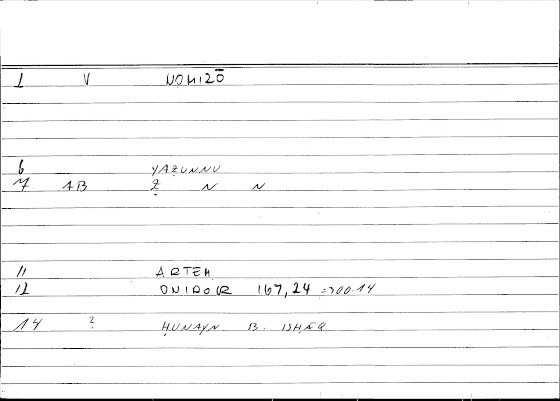 1 V NOMIZŌ
6 YAẒUNNU
7 AB Ẓ N N
11 ARTEM
12 ONIROCR 167,24 =>300.14
14 ? ḤUNAYN B. ISḤĀQ